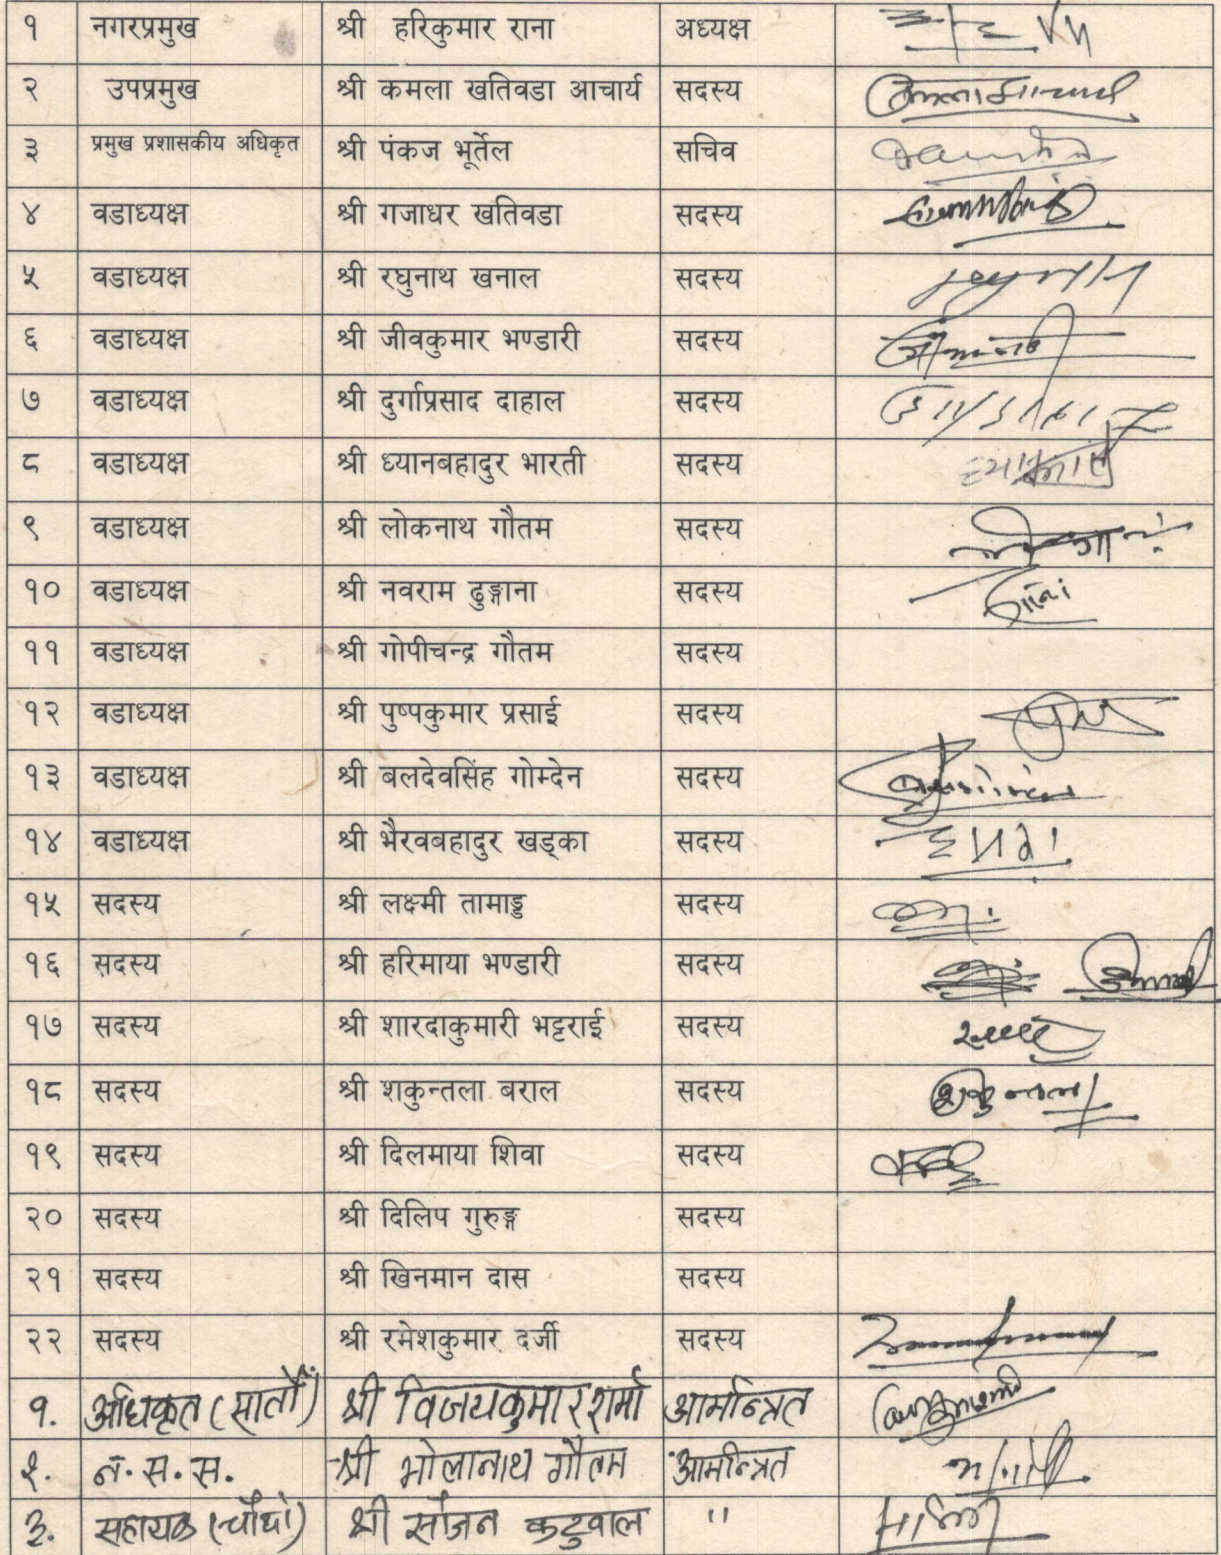 १ नगरप्रमुख श्री हरिकुमार राना अध्यक्ष
२ उपप्रमुख श्री कमला खतिवडा आचार्य सदस्य
३ प्रमुख प्रशासकीय अधिकृत श्री पंकज भूर्तेल सचिव
४ वडाध्यक्ष श्री गजाधर खतिवडा सदस्य
५ वडाध्यक्ष श्री रघुनाथ खनाल सदस्य
६ वडाध्यक्ष श्री जीवकुमार भण्डारी सदस्य
७ वडाध्यक्ष श्री दुर्गाप्रसाद दाहाल सदस्य
८ वडाध्यक्ष श्री ध्यानबहादुर भारती सदस्य
९ वडाध्यक्ष श्री लोकनाथ गौतम सदस्य
१० वडाध्यक्ष श्री नवराम ढुङ्गाना सदस्य
११ वडाध्यक्ष श्री गोपीचन्द्र गौतम सदस्य
१२ वडाध्यक्ष श्री पुष्पकुमार प्रसाई सदस्य
१३ वडाध्यक्ष श्री बलदेवसिंह गोम्देन सदस्य
१४ वडाध्यक्ष श्री भैरवबहादुर खड्का सदस्य
१५ सदस्य श्री लक्ष्मी तामाङ्ड सदस्य
१६ सदस्य श्री हरिमाया भण्डारी सदस्य
१७ सदस्य श्री शारदाकुमारी भट्टराई सदस्य
१८ सदस्य श्री शकुन्तला बराल सदस्य शकुन्तला
१९ सदस्य श्री दिलमाया शिवा सदस्य
२० सदस्य श्री दिलिप गुरुङ्ग सदस्य
२१ सदस्य श्री खिनमान दास सदस्य
२२ सदस्य श्री रमेशकुमार दर्जी सदस्य
१. अधिकृत (सातौं) श्री विजयकुमार शर्मा आमन्त्रित
२. न. स. स. श्री भोलानाथ गौतम आमन्त्रित
३. सहायक (चौथो) श्री सौजन कटुवाल "